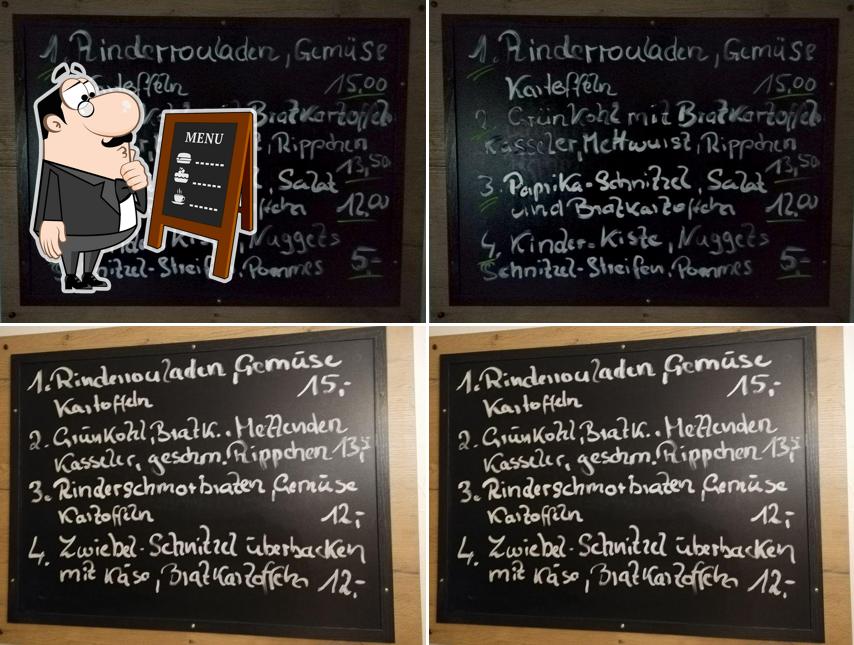 1. Rinderrouladen, Gemüse
Kartoffeln
15,00
Bratkartoffeln
Rippchen
13,50
Salat
12,00
Kinder=Kiste, Nuggets
Schnitzel-Streifen, Pommes 5,-
MENU
1. Rinderrouladen, Gemüse
Kartoffeln 15,00
2. Grünkohl mit Bratkartoffeln
Kasseler, Mettwurst, Rippchen
13,50
3. Paprika-Schnitzel, Salat
und Bratkartoffeln 12,00
4. Kinder=Kiste, Nuggets
Schnitzel-Streifen, Pommes 5,-
1. Rinderrouladen, Gemüse
Kartoffeln 15,-
2. Grünkohl, Bratk.. Mettenden
Kasseler, geschm. Rippchen 13,5
3. Rinderschmorbraten, Gemüse
Kartoffeln 12,-
4. Zwiebel-Schnitzel überbacken
mit Käse, Bratkartoffeln 12,-
1. Rinderrouladen, Gemüse
Kartoffeln 15,-
2. Grünkohl, Bratk.. Mettenden
Kasseler, geschm. Rippchen 13,5
3. Rinderschmorbraten, Gemüse
Kartoffeln 12,-
4. Zwiebel-Schnitzel überbacken
mit Käse, Bratkartoffeln 12,-